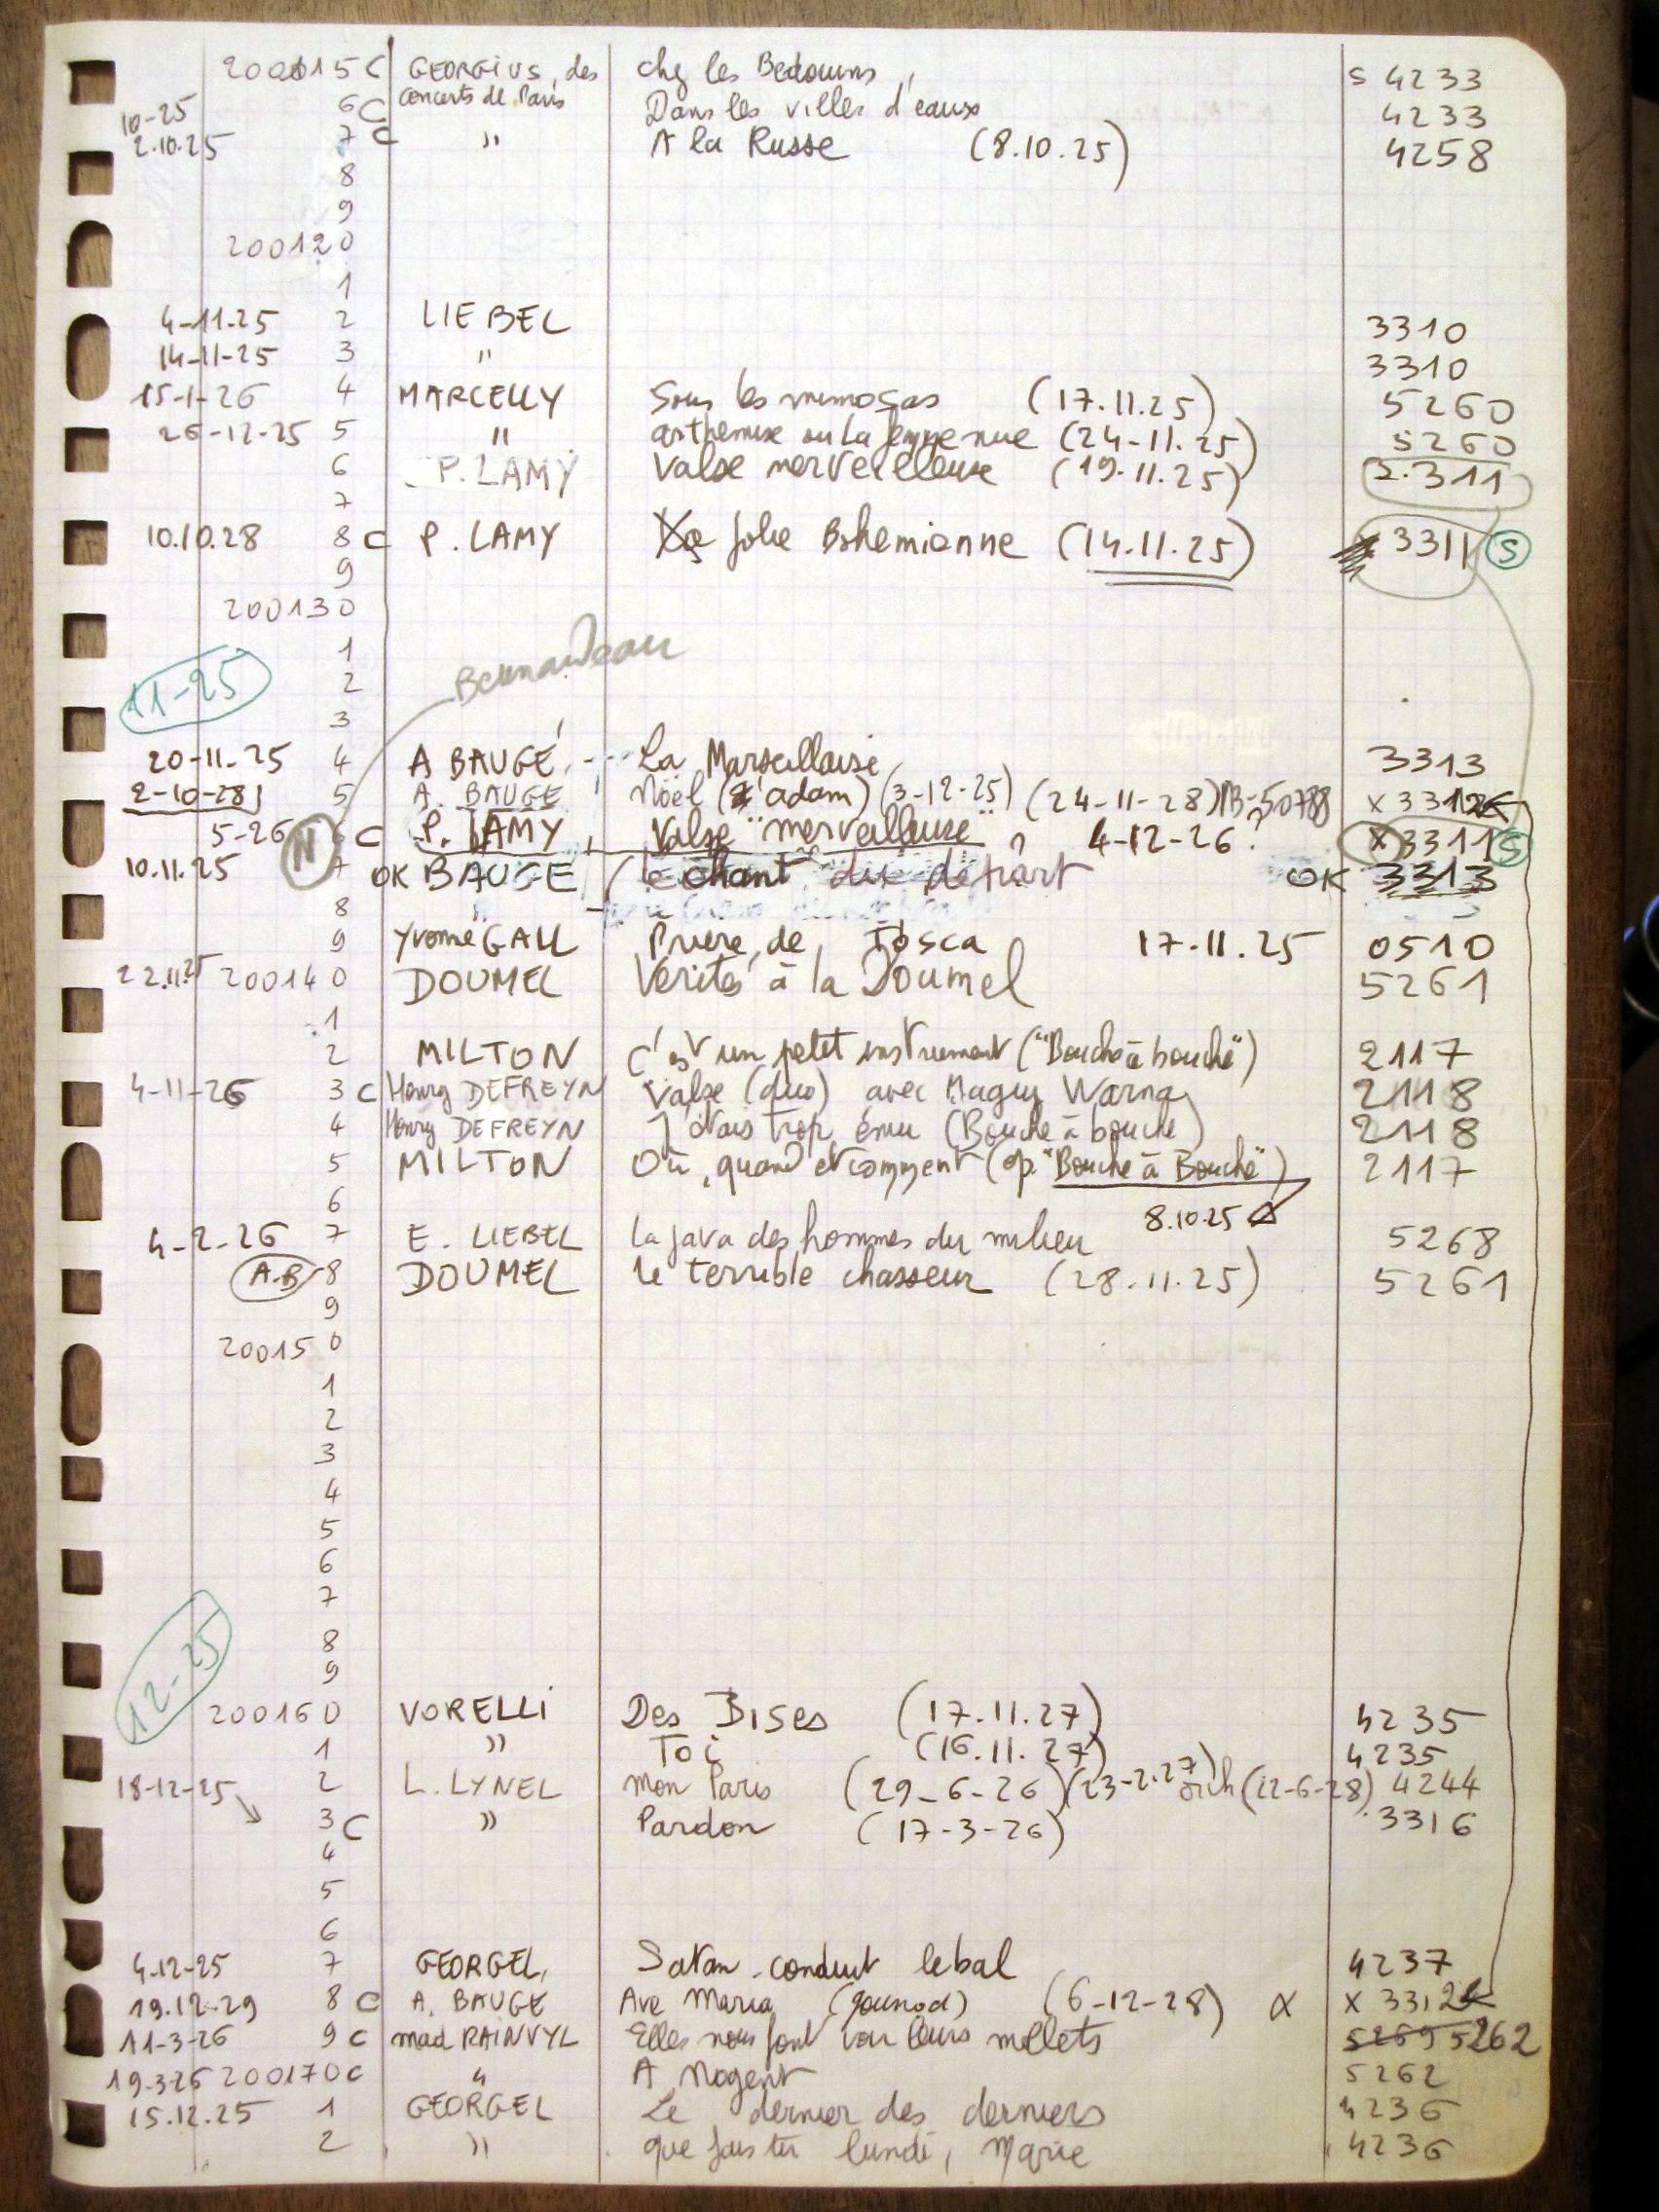 200115 C GEORGIUS, des Chez les Bedouins, S 4233
10-25 6 C concerts de Paris Dans les villes d'eaux 4233
2.10.25 7 C " A la Russe (8.10.25) 4258
8
9
200120
1
4-11-25 2 LIEBEL 3310
14-11-25 3 " 3310
15-1-26 4 MARCELLY Sous les mimosas (17.11.25) 5260
26-12-25 5 " arthemise ou la femme nue (24-11.25) 5260
6 P. LAMY Valse merveilleuse (19.11.25) 2.311
7
10.10.28 8 C P. LAMY folie Bohemienne (14.11.25) 3311 S
9
200130
1
11-25 2
3
Bernardeau
20-11-25 4 A BAUGÉ, La Marseillaise 3313
2-10-28 5 A. BAUGE Noël (adam) (3-12-25) (24-11-28) x 3312
5-26 N 6 C P. LAMY, Valse "merveilleuse" 4-12-26? x 3311 S
10.11.25 7 OK BAUGE le chant du départ OK 3313
8 "
9 Yvonne GALL Prière de Tosca 17-11.25 0510
22.11.25 200140 DOUMEL Vérités à la Doumel 5261
1
2 MILTON C'est un petit instrument ("Bouche à bouche") 2117
4-11-26 3 C Henry DEFREYN Valse (duo) avec Maguy Warna 2118
4 Henry DEFREYN J'étais trop ému (Bouche à bouche) 2118
5 MILTON Où, quand et comment (op. "Bouche à Bouche") 2117
6 8.10.25
4-2-26 7 E. LIEBEL la java des hommes du milieu 5268
A.B 8 DOUMEL le terrible chasseur (28.11.25) 5261
9
200150
1
2
3
4
5
6
7
12-25 8
9
200160 VORELLI Des Bises (17.11.27) 4235
1 " Toi (16.11.27) 4235
18-12-25 2 L. LYNEL mon Paris (29-6-26) (23-2-27) (22-6-28) 4244
3 C " Pardon (17-3-26) 3316
4
5
6
4-12-25 7 GEORGEL, Satan conduit le bal 4237
19.12-29 8 C A. BAUGE Ave Maria (gounod) (6-12-28) x x 3312
11-3-26 9 C mad RAINVYL Elles nous font voir leurs mollets 5269 5262
19-3-26 200170 C " A Nogent 5262
15.12.25 1 GEORGEL Le dernier des derniers 4236
2 " que fais tu lundi, Marie 4236